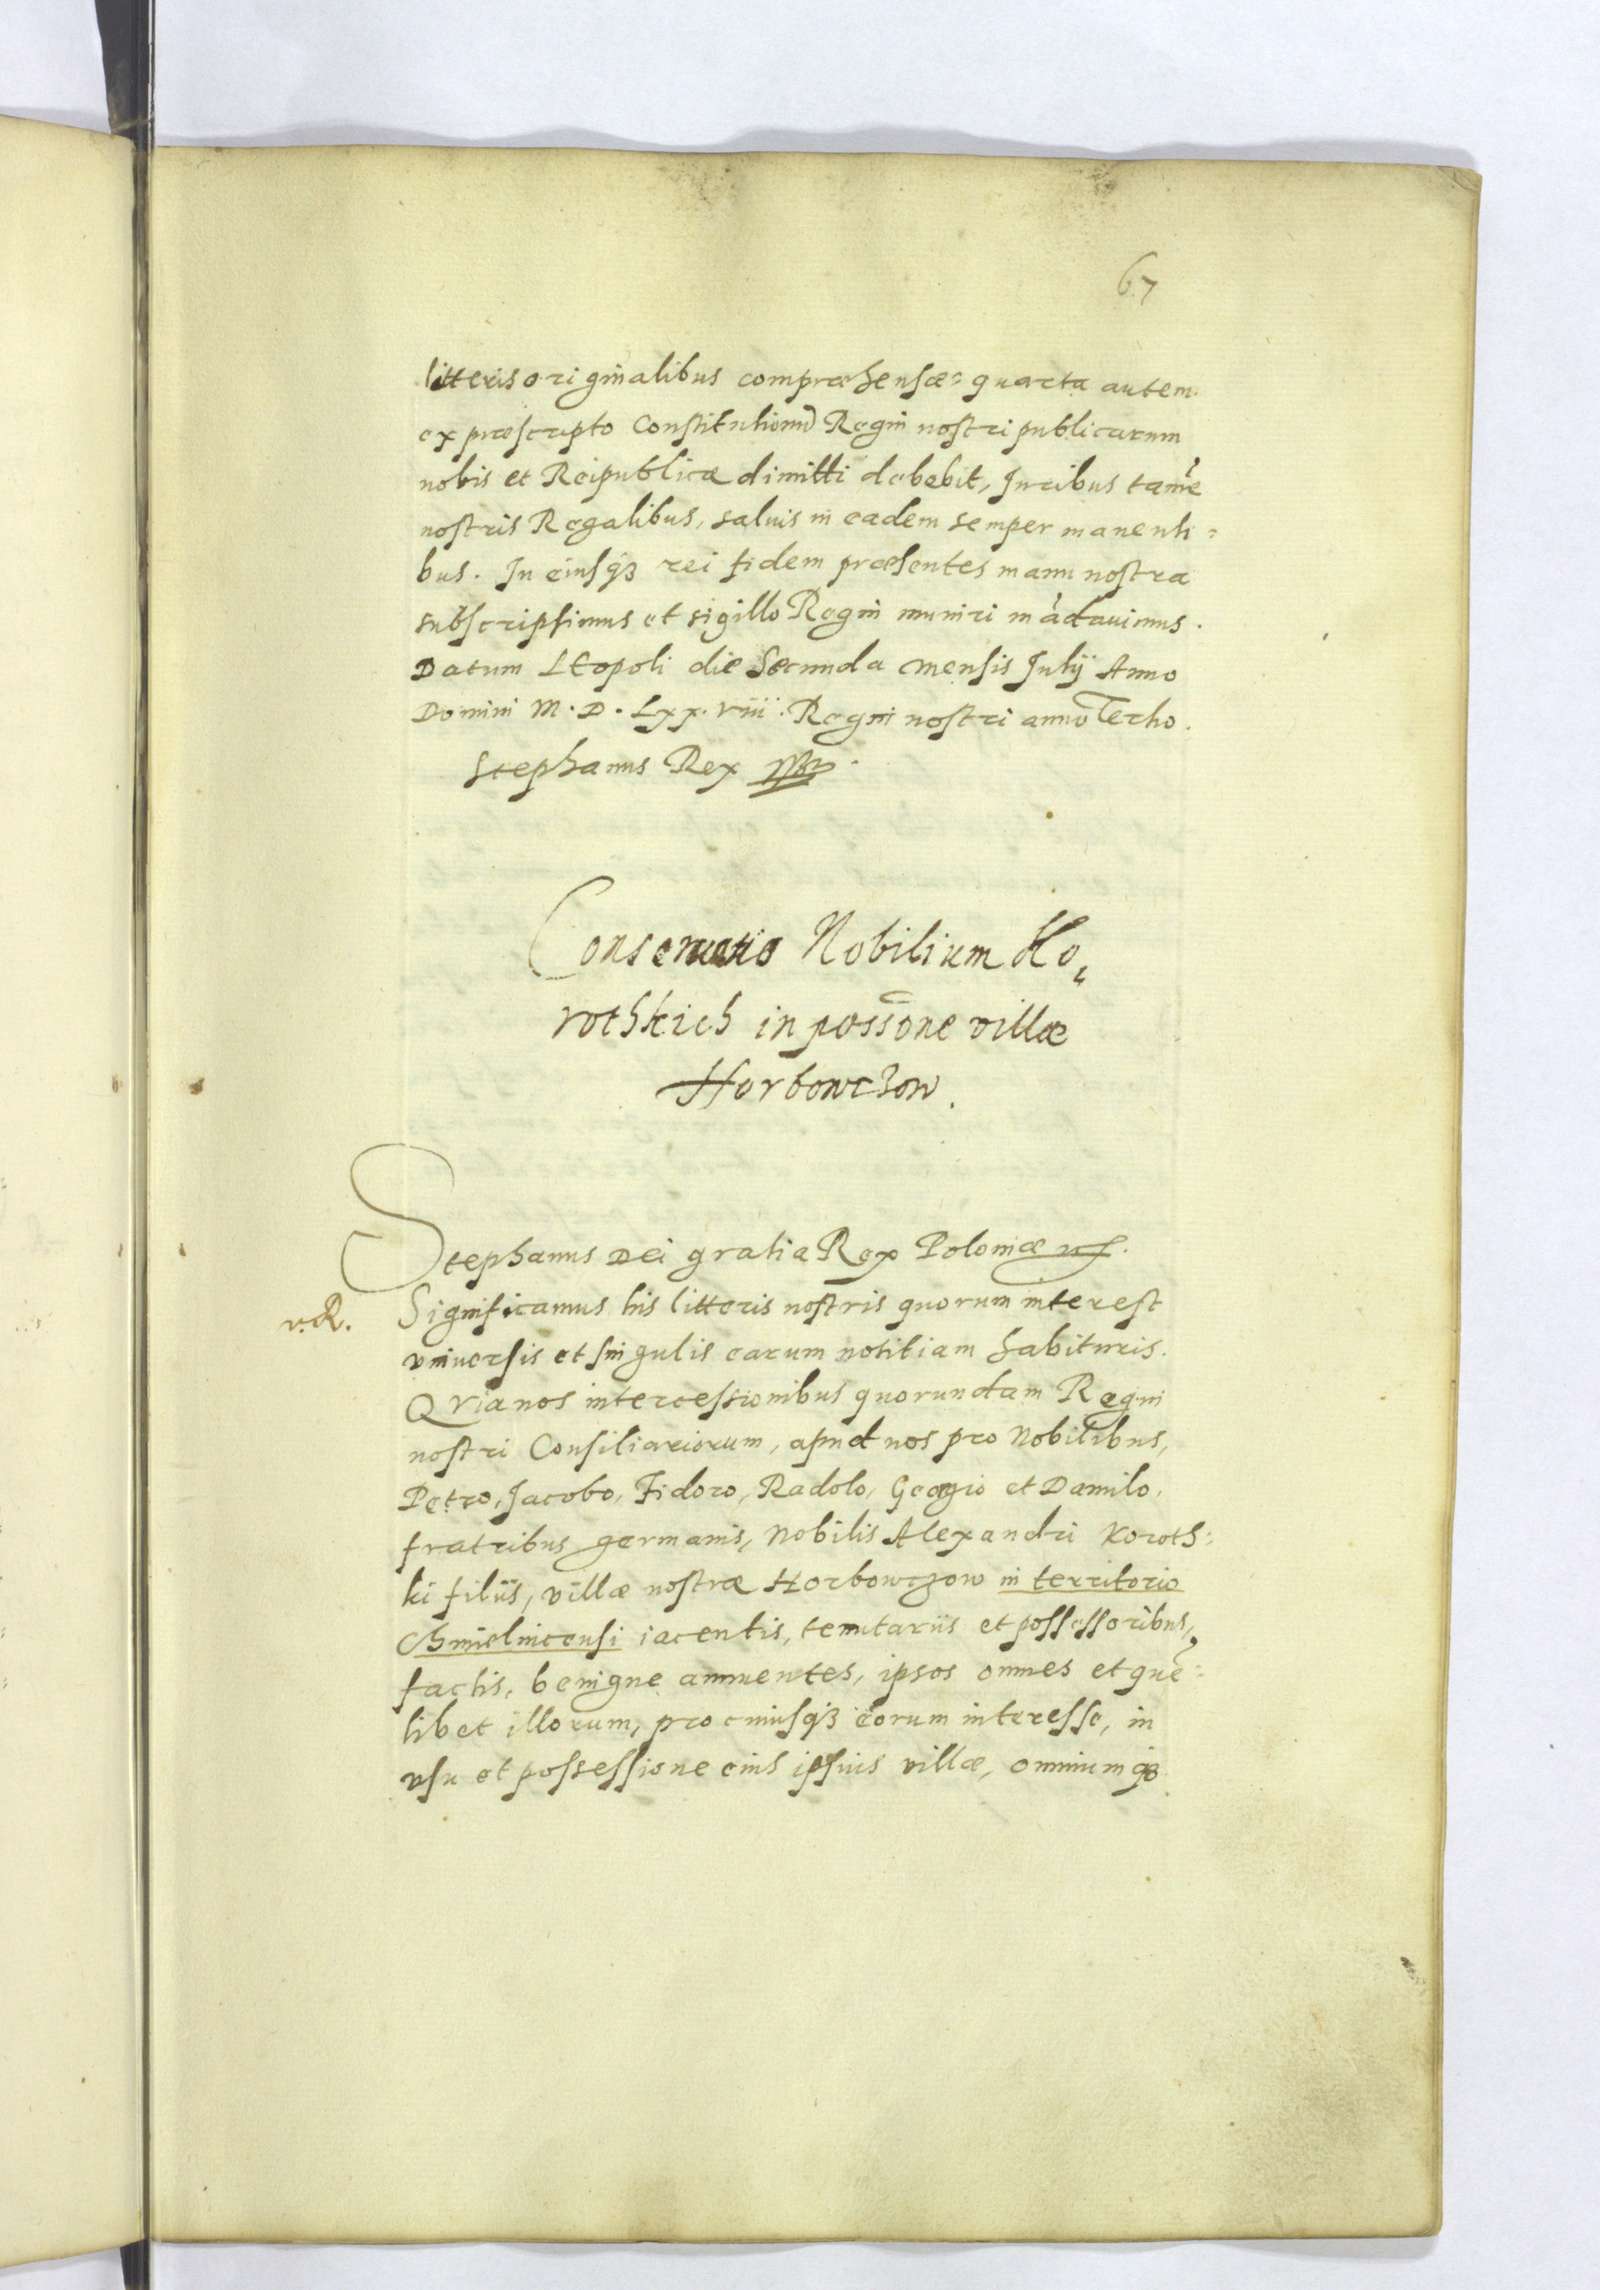 67
litteris originalibus compræhensæ: quarta autem
ex præscripto Constitutionũ Regni nostri publicarum
nobis et Reipublicæ dimitti debebit, Juribus tamẽ
nostris Regalibus, saluis in eadem semper manenti=
bus. In eiusq3 rei fidem præsentes manu nostra
subscripsimus et sigillo Regni muniri mãdauimus.
Datum LEopoli die Secunda mensis Julij Anno
Domini M.D.Lxx.viii. Regni nostri anno Tertio.
Stephanus Rex
Conseruatio Nobilium Ko„
rothkich in possõne villæ
Horbowczow.
Stephanus Dei gratia Rex Poloniæ
v.R.
Significamus his litteris nostris quorum interest
vniuersis et singulis earum notitiam habituris.
Qvia nos intercessionibus quorundam Regni
nostri Consiliariorum, apud nos pro Nobilibus,
Petro, Jacobo, Fidoro, Radolo, Georgio et Danilo,
fratribus germanis, Nobilis Alexandri Koroth=
ki filiis, villæ nostræ Horbowczow in territorio
Chmielnicensi iacentis, tenutariis et possessoribus,
factis, benigne annuentes, ipsos omnes et quẽ=
libet illorum, pro cuiusq3 eorum interesse, in
vsu et possessione eius ipsius villæ, omniumq3